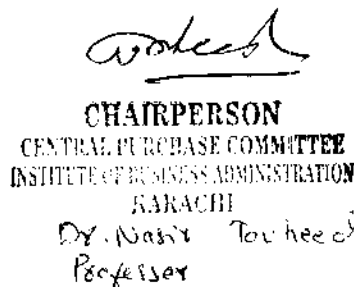 CHAIRPERSON
CENTRAL PURCHASE COMMITTEE
INSTITUTE OF BUSINESS ADMINISTRATION
KARACHI
Dr. Nasir Touheed
Professer